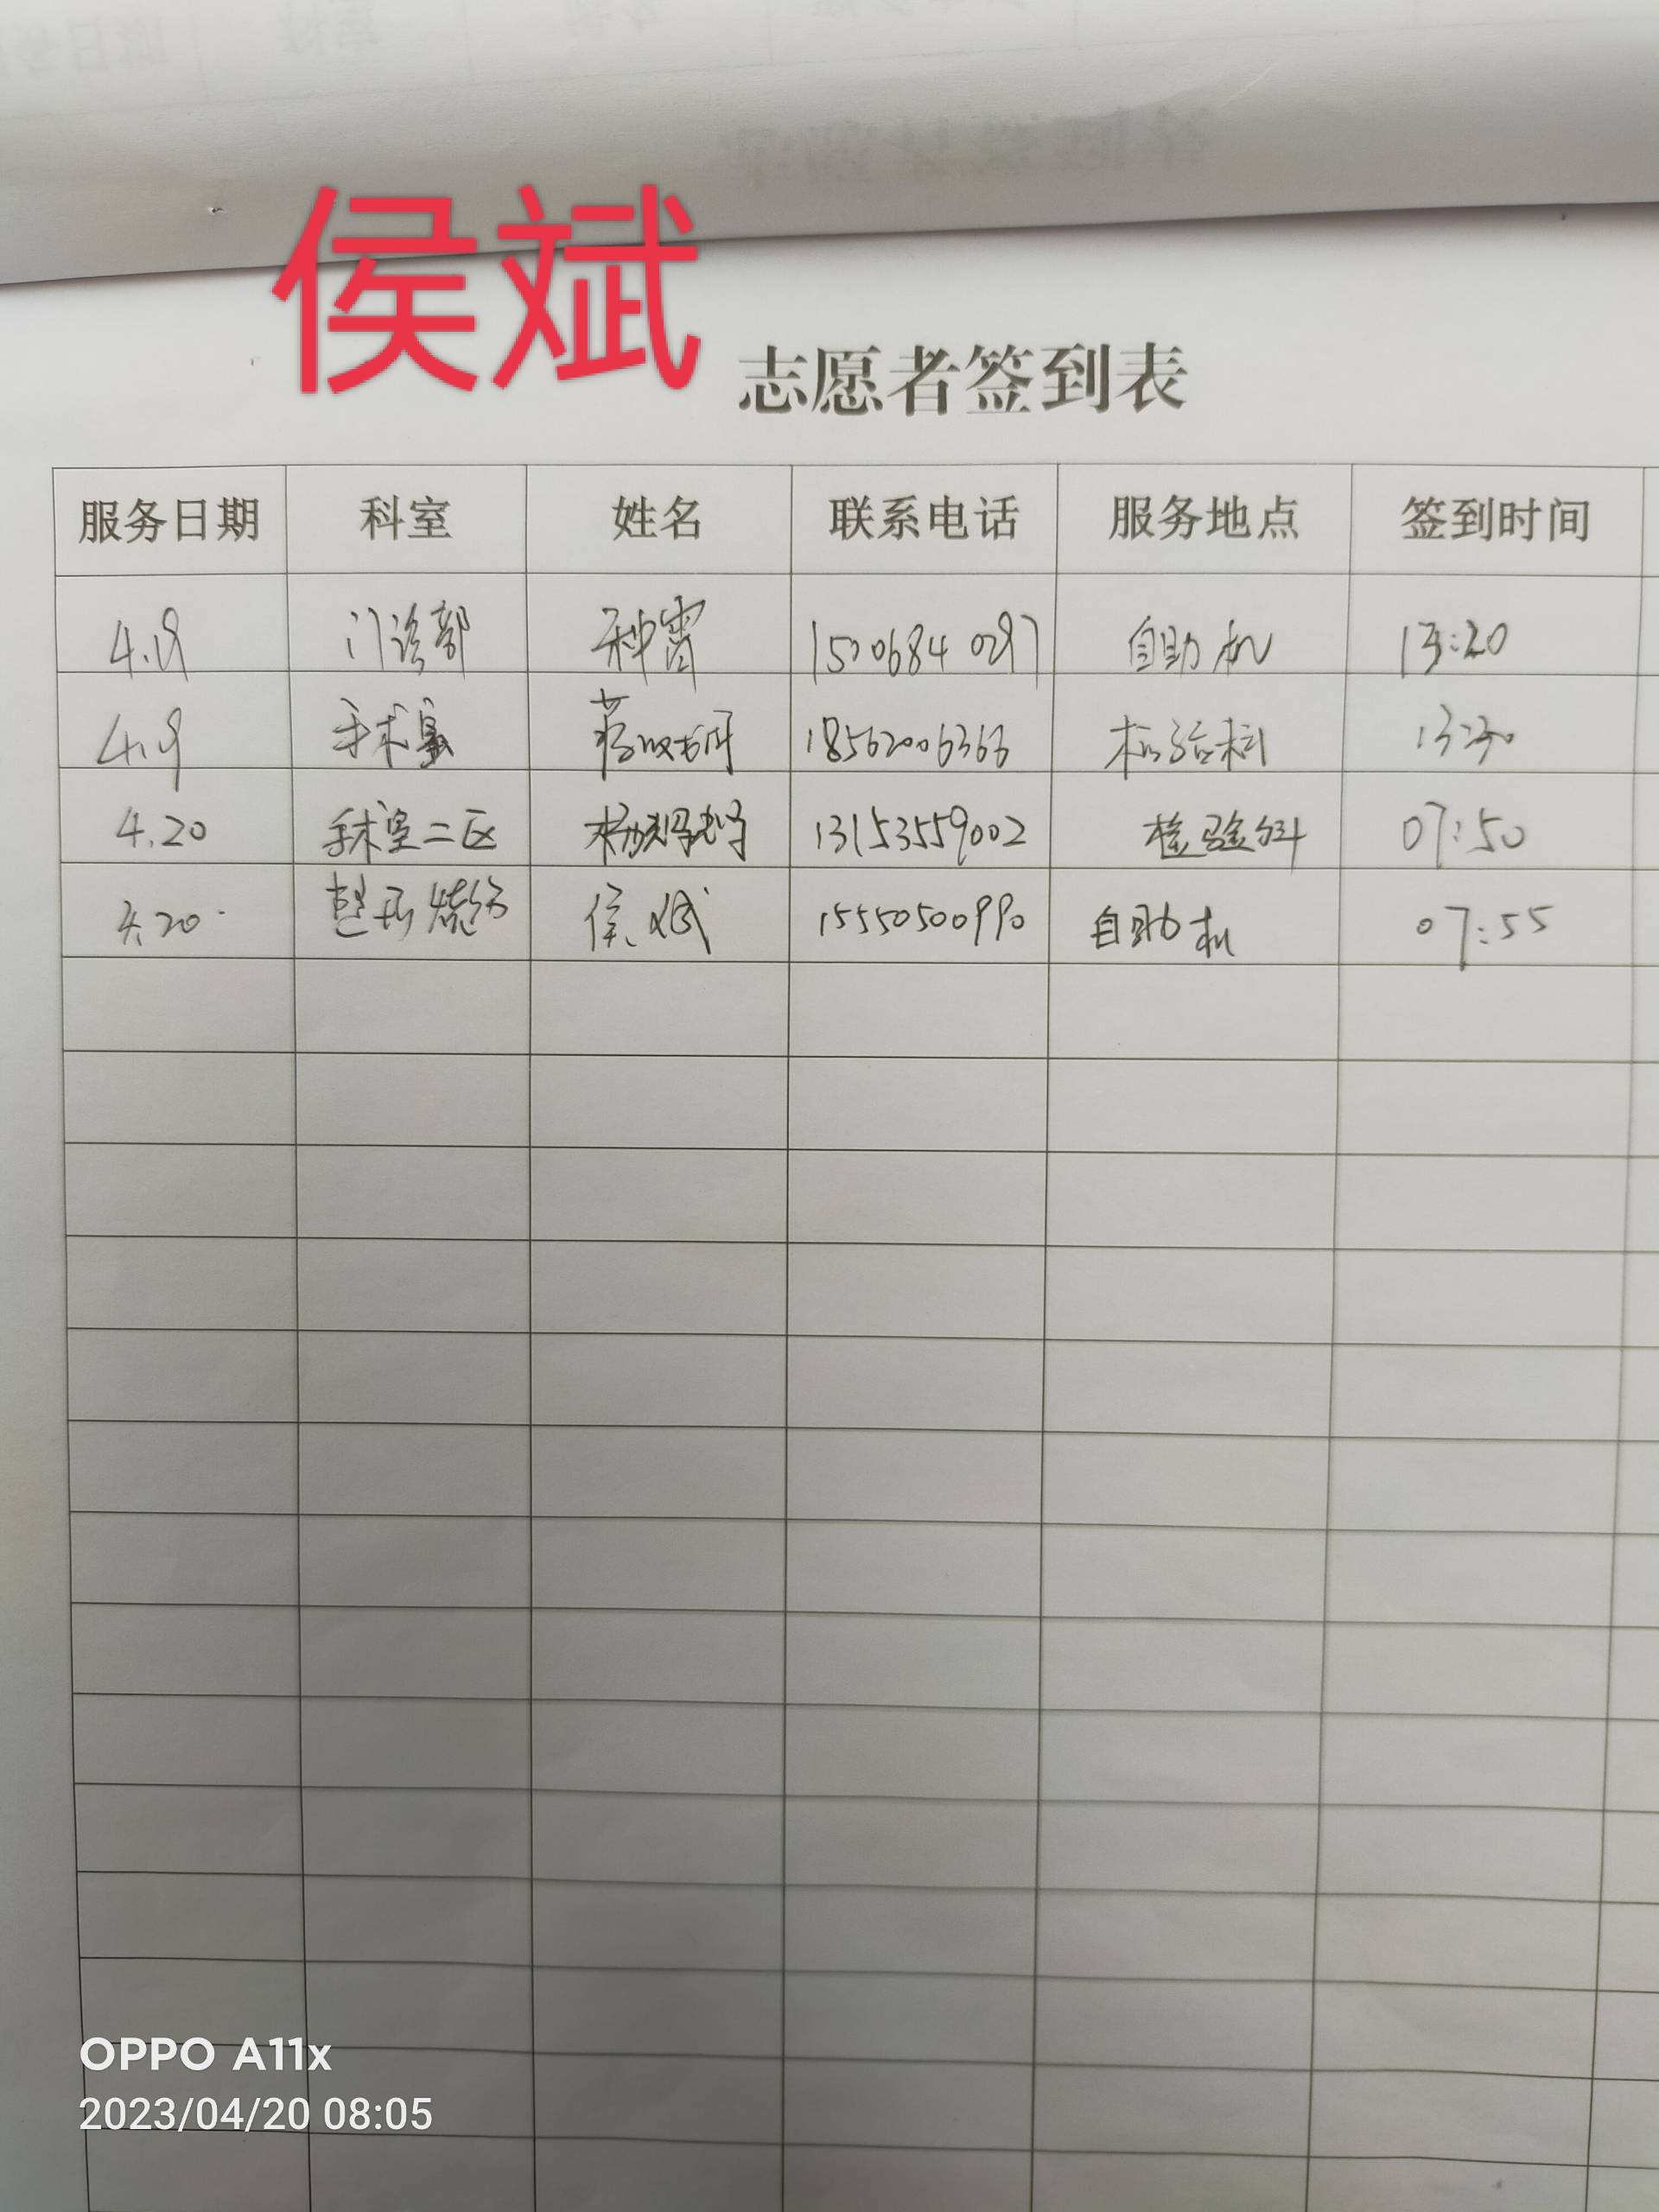 侯斌
志愿者签到表
服务日期 科室 姓名 联系电话 服务地点 签到时间
4.19 门诊部 种霄 自助机 13:20
4.19 手术室 18562006366 检验科 13:30
4.20 手术室二区 13153559002 检验科 07:50
4.20 整形烧伤 侯斌 15550500990 自助机 07:55
OPPO A11x
2023/04/20 08:05